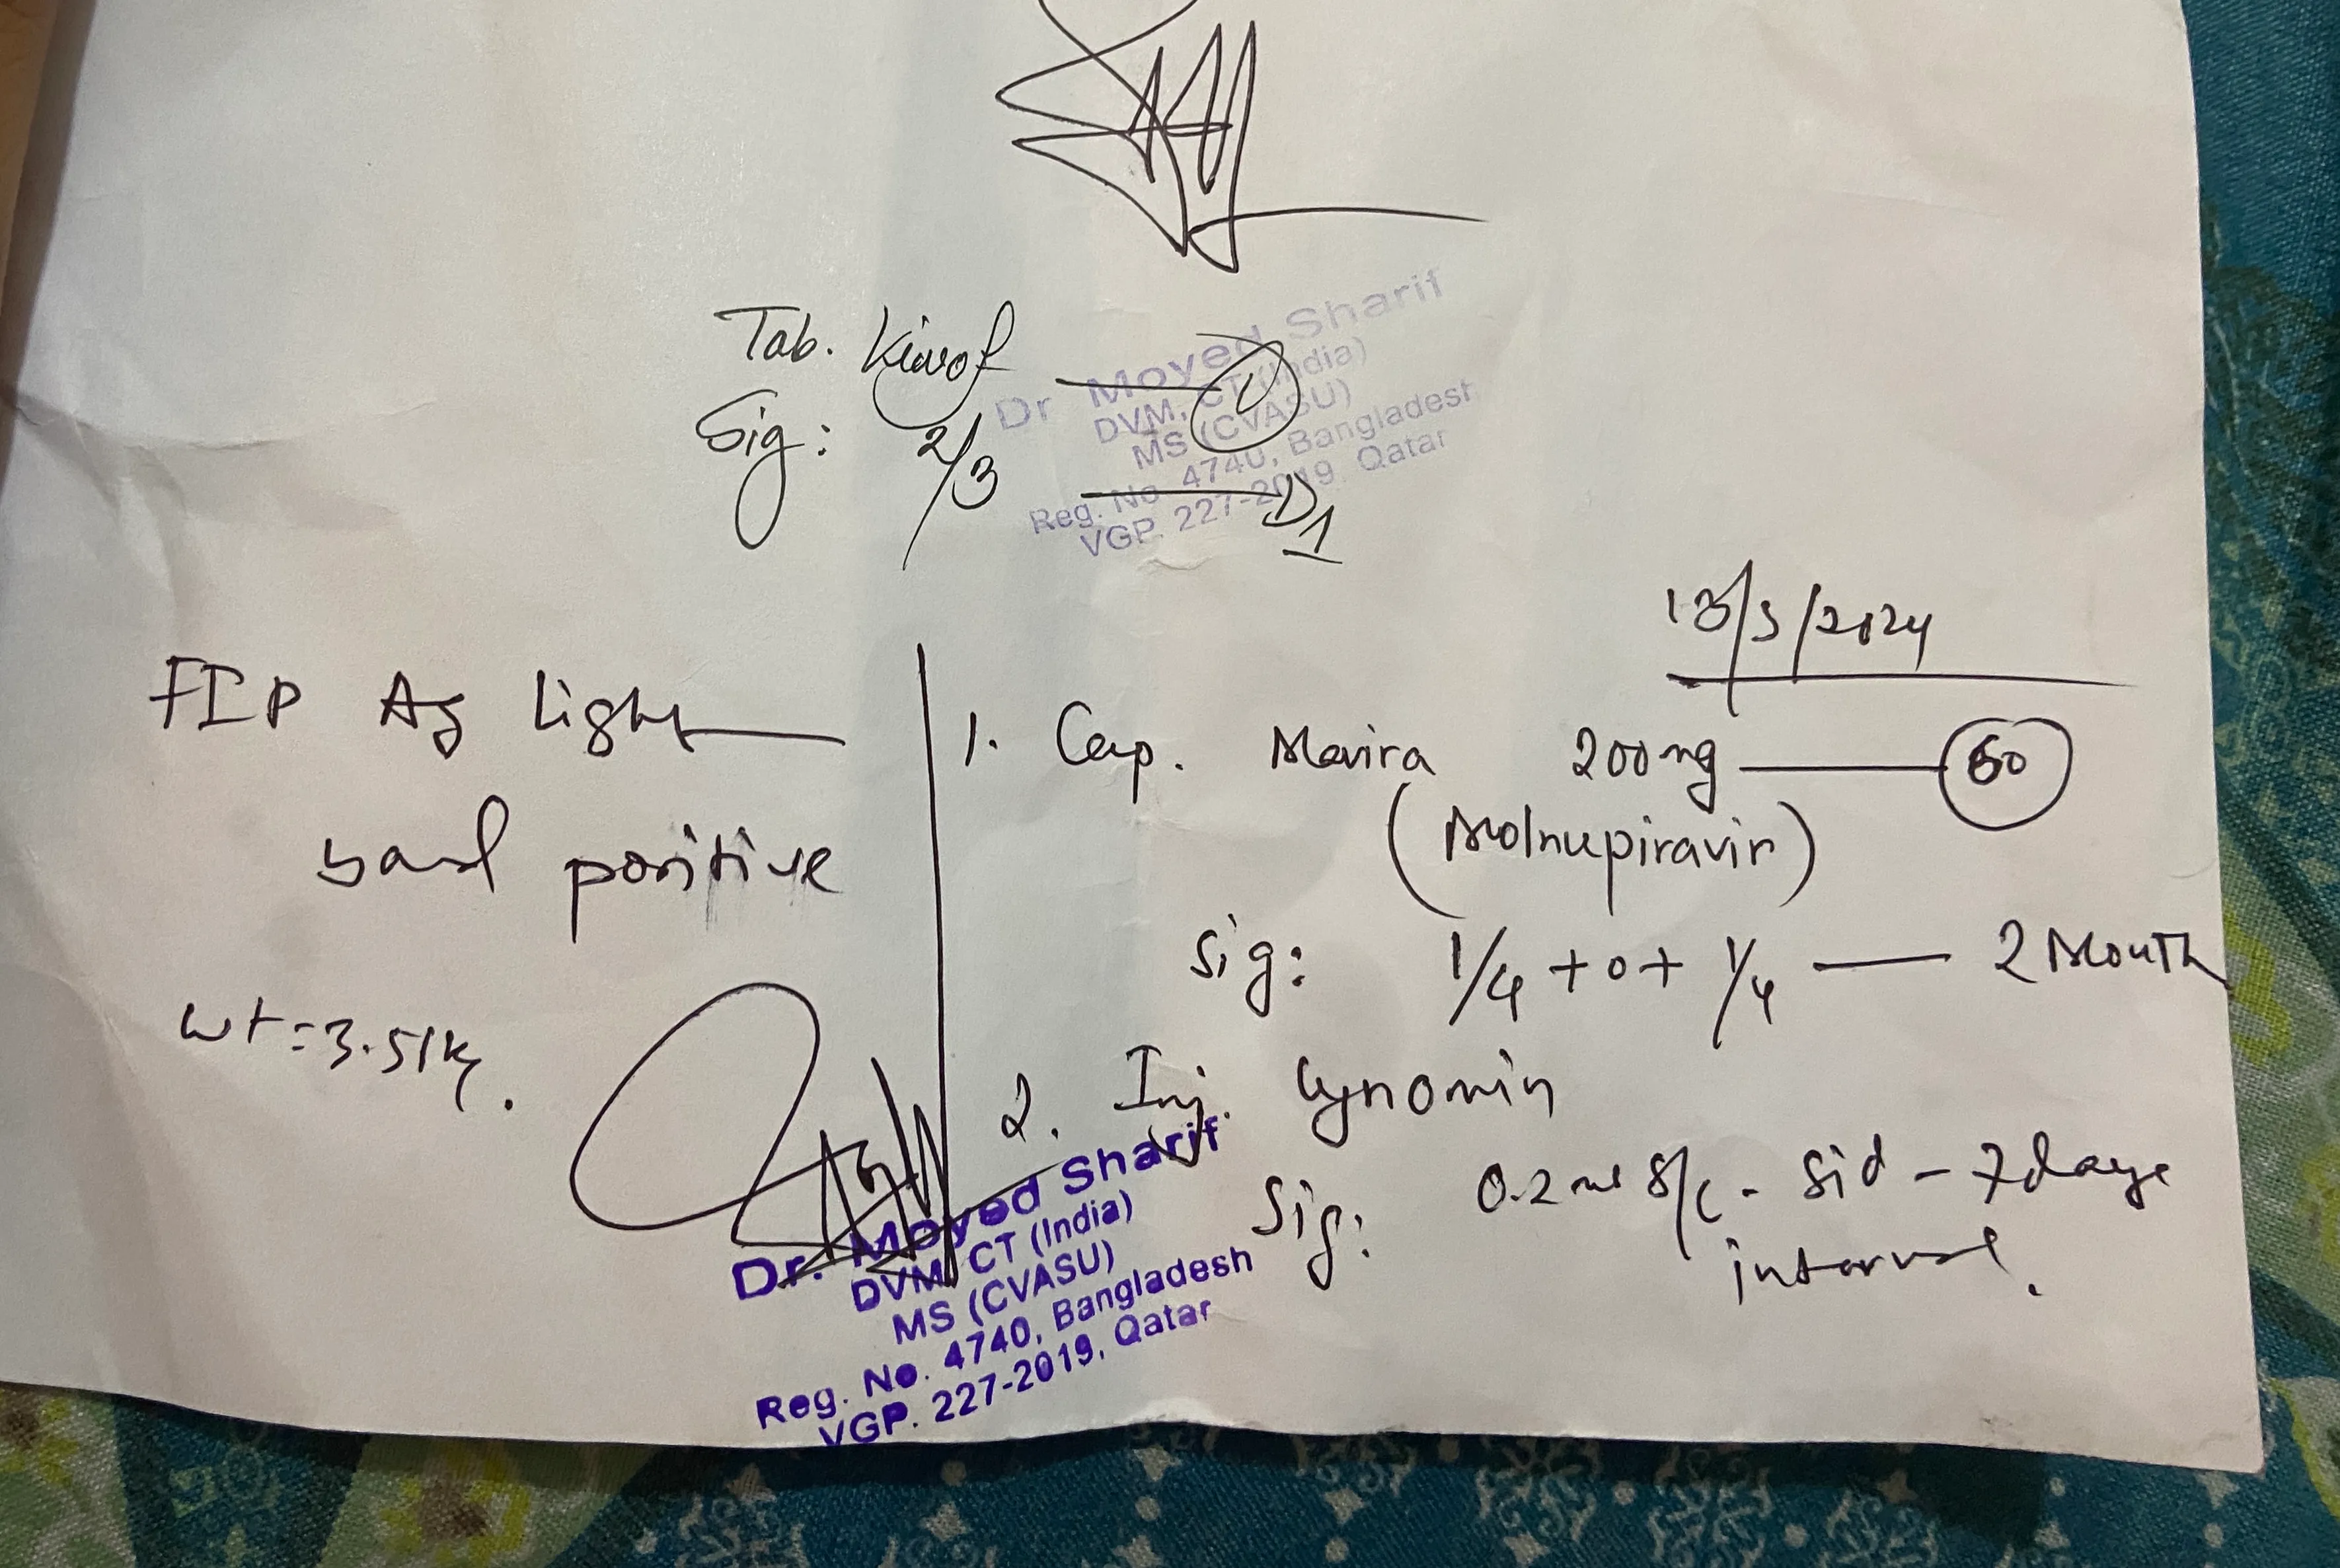 Tab. Kiwof
1
Dr Moyed Sharif
DVM, CT (India)
MS (CVASU)
Reg. No 4740, Bangladesh
VGP. 227-2019 Qatar
Sig: 2/3 D1
13/3/2024
FIP Ag light
band positive
wt = 3.51 kg.
1. Cap. Movira 200mg 60
(Molnupiravir)
Sig: 1/4 + 0 + 1/4 — 2 Month
2. Inj.
Sig: 0.2 ml S/C - Sid - 7 days
interval.
Dr. Moyed Sharif
DVM, CT (India)
MS (CVASU)
Reg. No. 4740, Bangladesh
VGP. 227-2019, Qatar